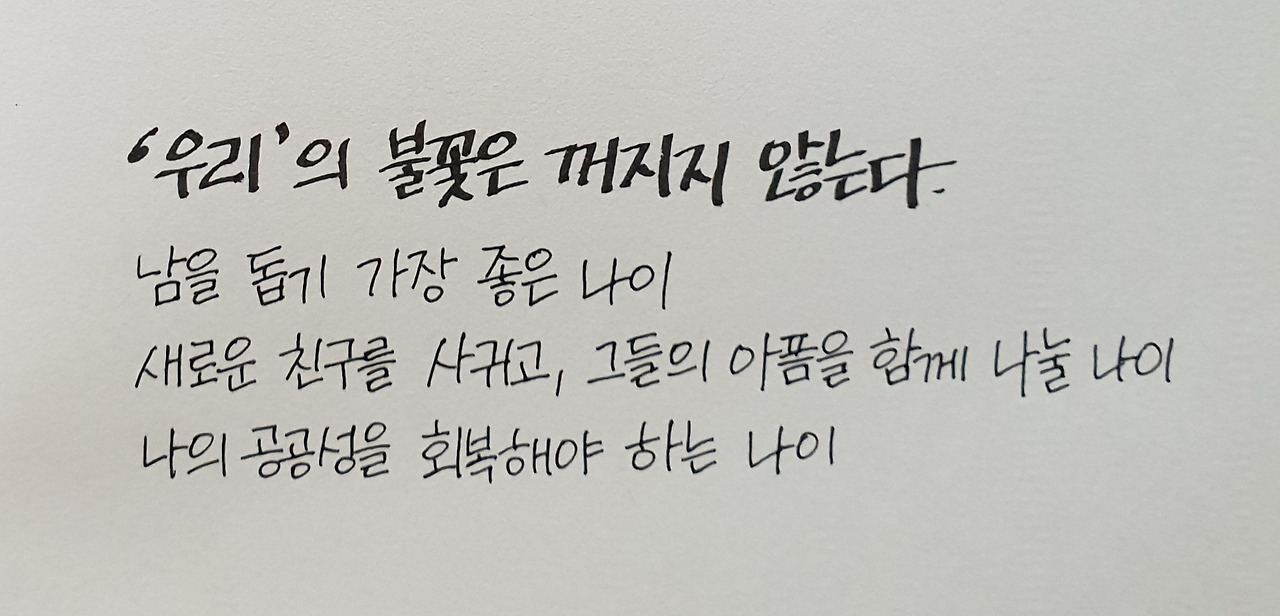 ‘우리’의 불꽃은 꺼지지 않는다.
남을 돕기 가장 좋은 나이
새로운 친구를 사귀고, 그들의 아픔을 함께 나눌 나이
나의 공공성을 회복해야 하는 나이